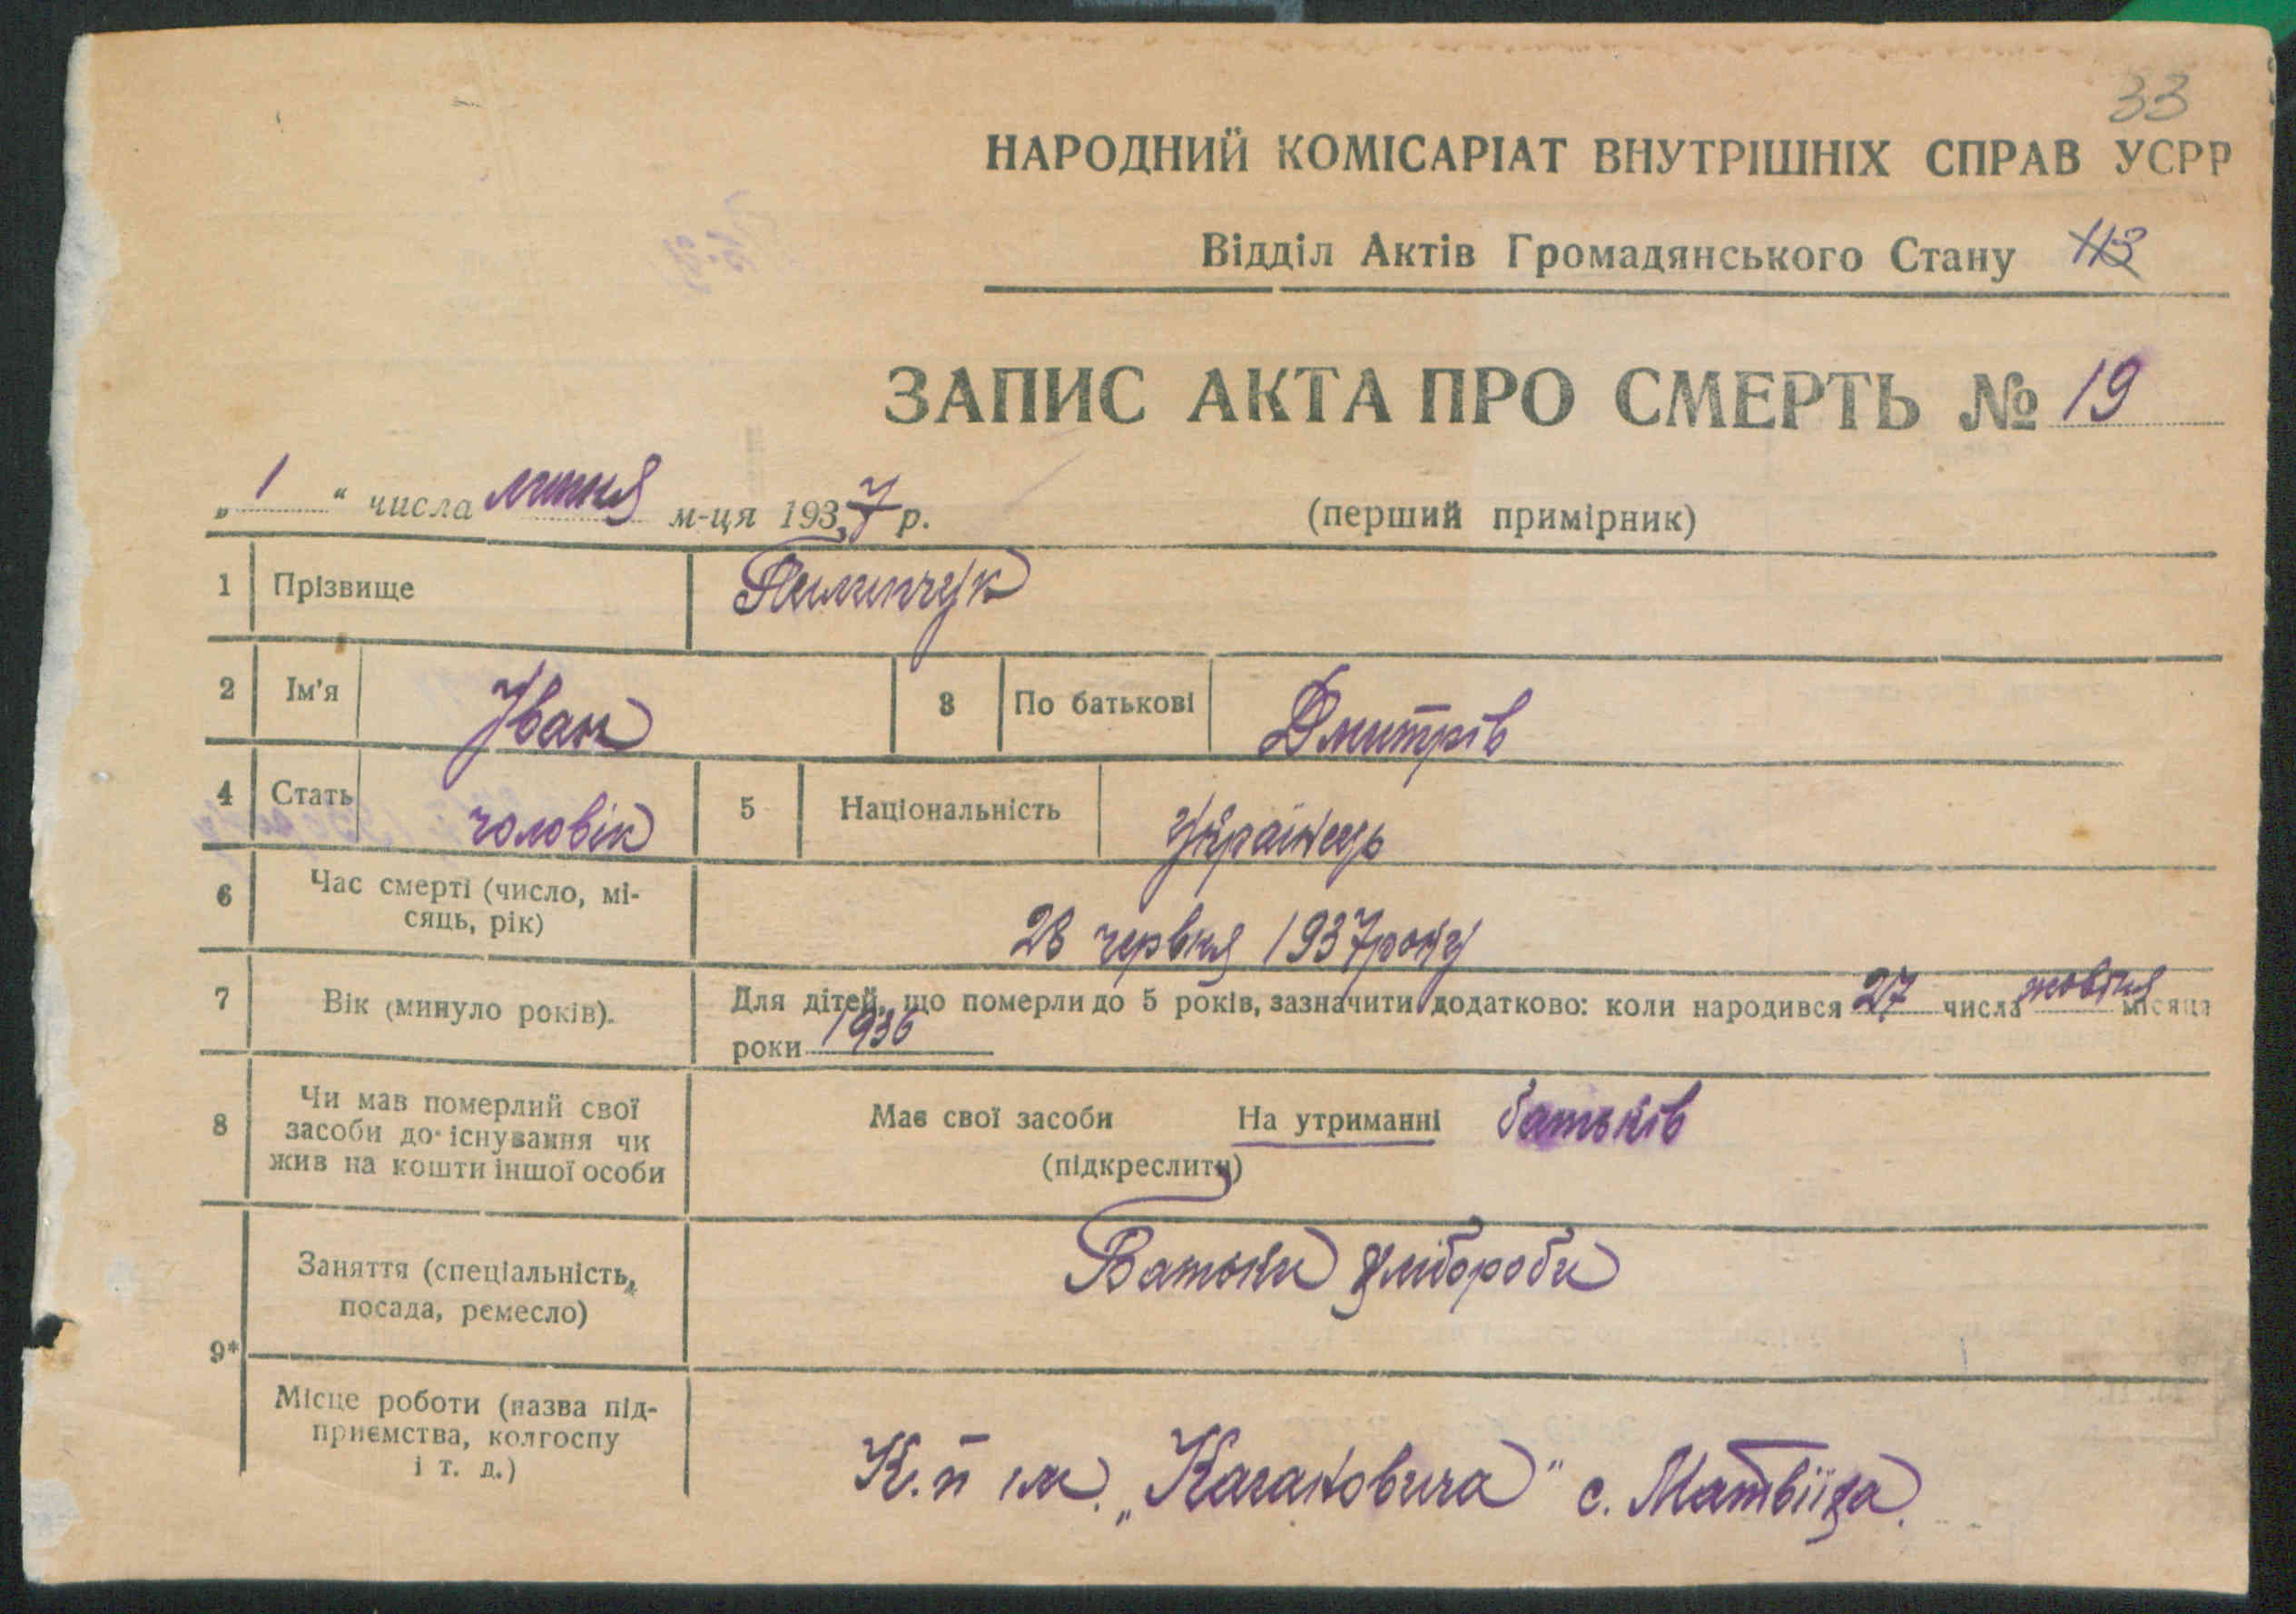 33
НАРОДНИЙ КОМІСАРІАТ ВНУТРІШНІХ СПРАВ УСРР
Відділ Актів Громадянського Стану 113
ЗАПИС АКТА ПРО СМЕРТЬ № 19
„1“ числа липня м-ця 1937 р. (перший примірник)
1 Прізвище Пилипчук
2 Ім'я Іван 3 По батькові Дмитрів
4 Стать чоловік 5 Національність Українець
6 Час смерті (число, мі-
сяць, рік)
28 червня 1937 року
7 Вік (минуло років). Для дітей, що померли до 5 років, зазначити додатково: коли народився 27 числа жовтня місяця
роки 1936
8 Чи мав померлий свої
засоби до існування чи
жив на кошти іншої особи
Має свої засоби На утриманні батьків
(підкреслити)
9*
Заняття (спеціальність,
посада, ремесло)
Батьки хлібороби
Місце роботи (назва під-
приємства, колгоспу
і т. д.)
К.п ім. „Кагановича" с. Матвіїха.